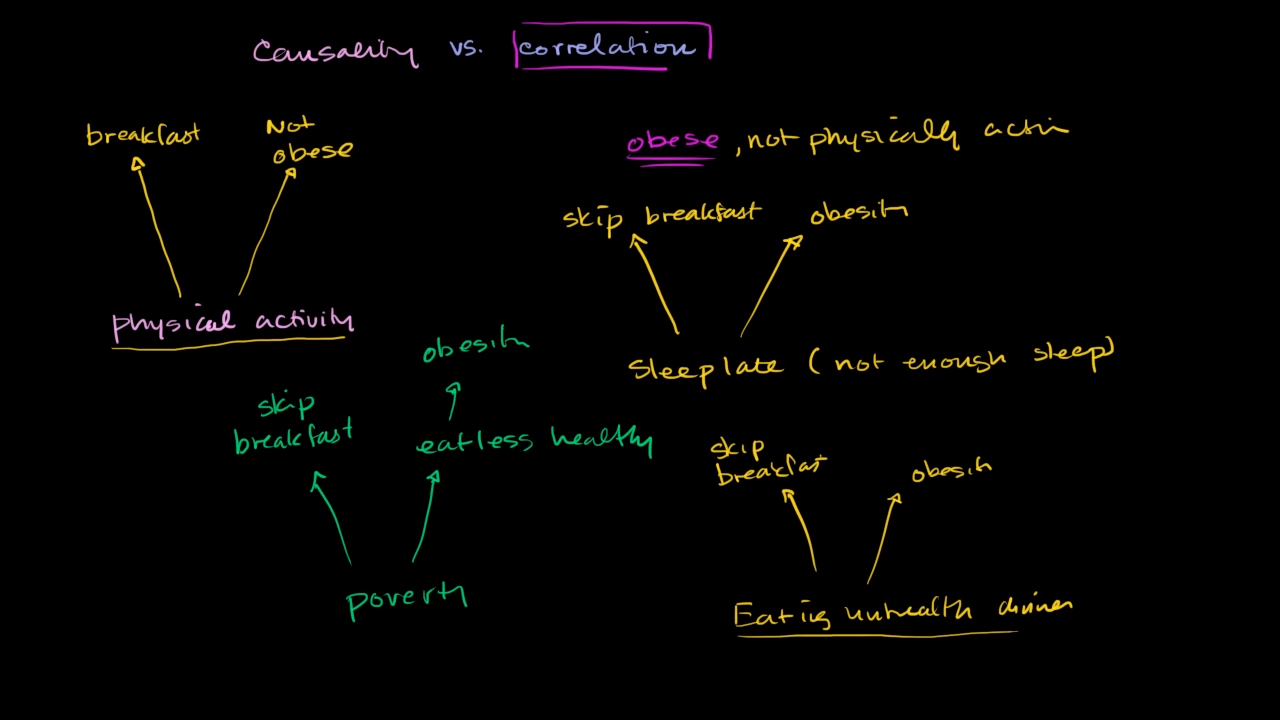 Causality vs. correlation
breakfast
Not
obese
physical activity
obese, not physically activ
skip breakfast
obesity
Sleep late (not enough sleep)
obesity
skip
breakfast
eat less healthy
poverty
skip
breakfast
obesity
Eating unhealthy dinner